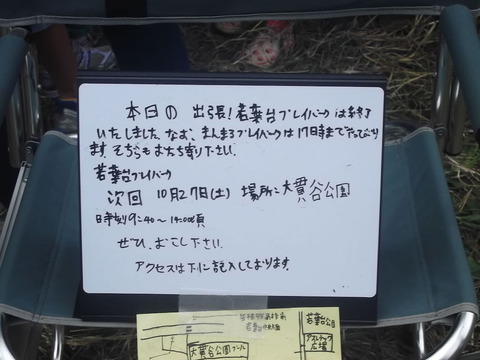 本日の 出張!若葉台プレイパークは終了
いたしました。なお、まんまるプレイパークは17日時までやっており
ます。そちらもお立ち寄り下さい。
若葉台プレイパーク
次回 10月27日(土) 場所:大貫谷公園
日時刻9:40〜14:00頃
ぜひ、おこし下さい。
アクセスは下に記入しております。
若葉台公園
アスレチック
広場
大貫谷公園プール